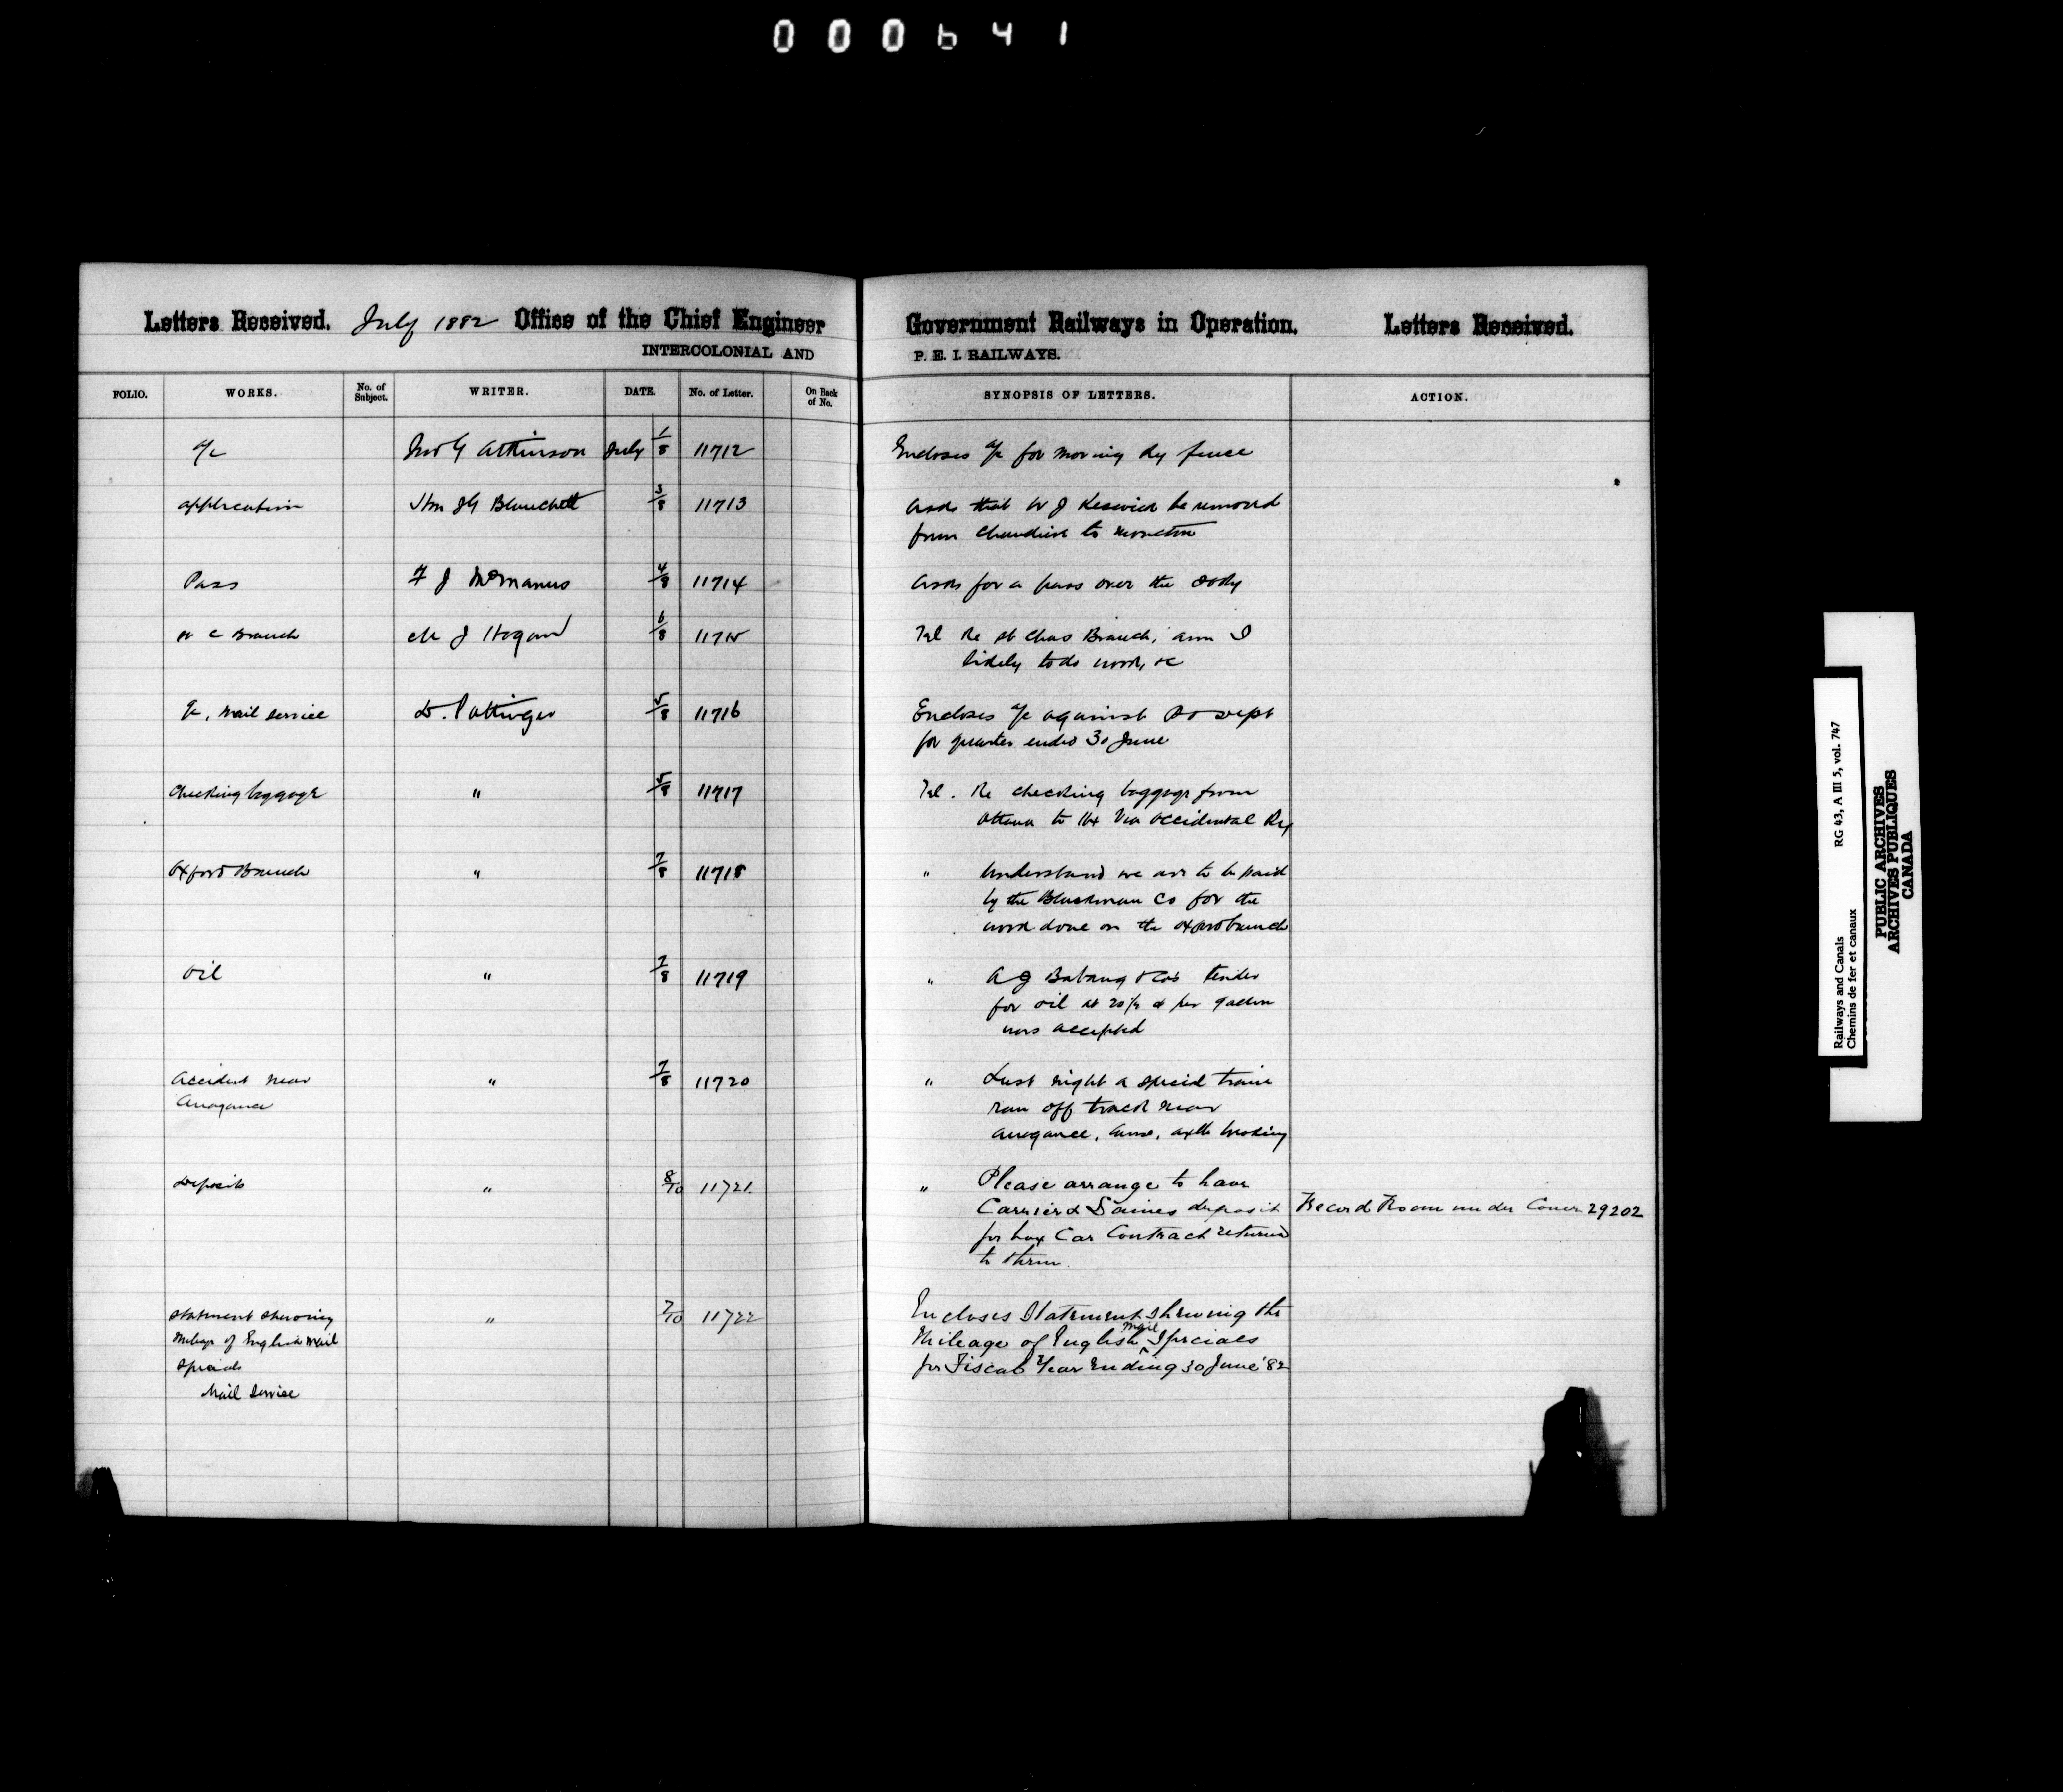 000641
Letters Received. July 1882 Office of the Chief Engineer Government Railways in Operation. Letters Received.
INTERCOLONIAL AND P. E. I. RAILWAYS.
FOLIO. WORKS. No. of Subject. WRITER. DATE. No. of Letter. On Back of No. SYNOPSIS OF LETTERS. ACTION.
a/c Jno G Atkinson July 1/8 11712 Encloses a/c for moving Ry fence
application Hon JG Blanchett 3/8 11713 Asks that W J Keswick be removed
from Chaudiere to Moncton
Pass F J McManus 4/8 11714 Asks for a pass over the
St C Branch M J Hogan 6/8 11715 Tel Re St Chas Branch, am I
likely to do work, &c
a/c, Mail Service D. Pottinger 5/8 11716 Encloses a/c against P O Dept
for quarter ended 30 June
Checking baggage " 5/8 11717 Tel. Re checking baggage from
Ottawa to Hx Via Occidental Ry
Oxford Branch " 7/8 11718 " Understand we are to be paid
by the Co for the
work done on the Oxford branch
Oil " 7/8 11719 " A G & Co's tender
for oil at 20 1/2 ¢ per gallon
was accepted
Accident near " 7/8 11720 " Last night a special train
Anagance
ran off track near
Anagance, axle breaking
Deposit " 8/10 11721. " Please arrange to have
Carrier & Laines deposit Record Room under Cover 29202
for box Car Contract returned
to them.
Statement showing " 7/10 11722 Encloses Statement Shewing the
Mileage of English Mail Mileage of English Mail Specials
Specials for Fiscal Year Ending 30 June '82
Mail Service
Railways and Canals RG 43, A III 5, vol. 747
Chemins de fer et canaux
PUBLIC ARCHIVES
ARCHIVES PUBLIQUES
CANADA